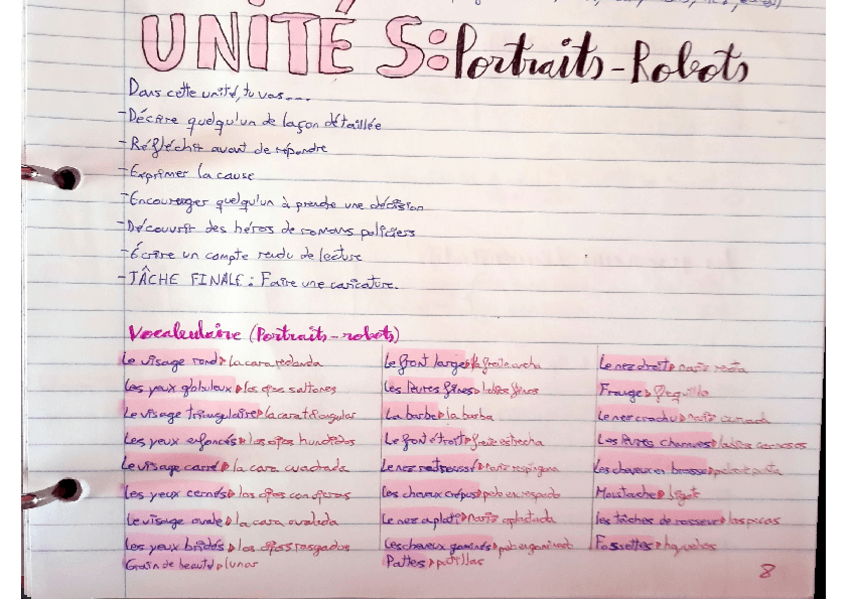 UNITÉ 5: Portraits-Robots
Dans cette unité, tu vas...
-Décrire quelqu'un de façon détaillée
-Réfléchir avant de répondre
-Exprimer la cause
-Encourager quelqu'un à prendre une décision
-Découvrir des héros de romans policiers
-Écrire un compte rendu de lecture
-TÂCHE FINALE: Faire une caricature.
Vocabulaire (Portraits-robots)
Le visage rond la cara redonda
Les yeux globuleux los ojos saltones
Le visage triangulaire la cara triangular
Les yeux enfoncés los ojos hundidos
Le visage carré la cara cuadrada
Les yeux cernés los ojos con ojeras
Le visage ovale la cara ovalada
Les yeux bridés los ojos rasgados
Grain de beauté lunar
Le front large la frente ancha
Les lèvres fines labios finos
La barbe la barba
Le front étroit frente estrecha
Le nez retroussé nariz respingona
Les cheveux crépus pelo encrespado
Le nez aplati nariz aplastada
Les cheveux gominés pelo engominado
Pattes patillas
Le nez droit nariz recta
Frange flequillo
Le nez crochu nariz curvada
Les lèvres charnues labios carnosos
Les cheveux en brosse pelo de punta
Moustache bigote
les tâches de rousseur las pecas
Fossettes hoyuelos
8